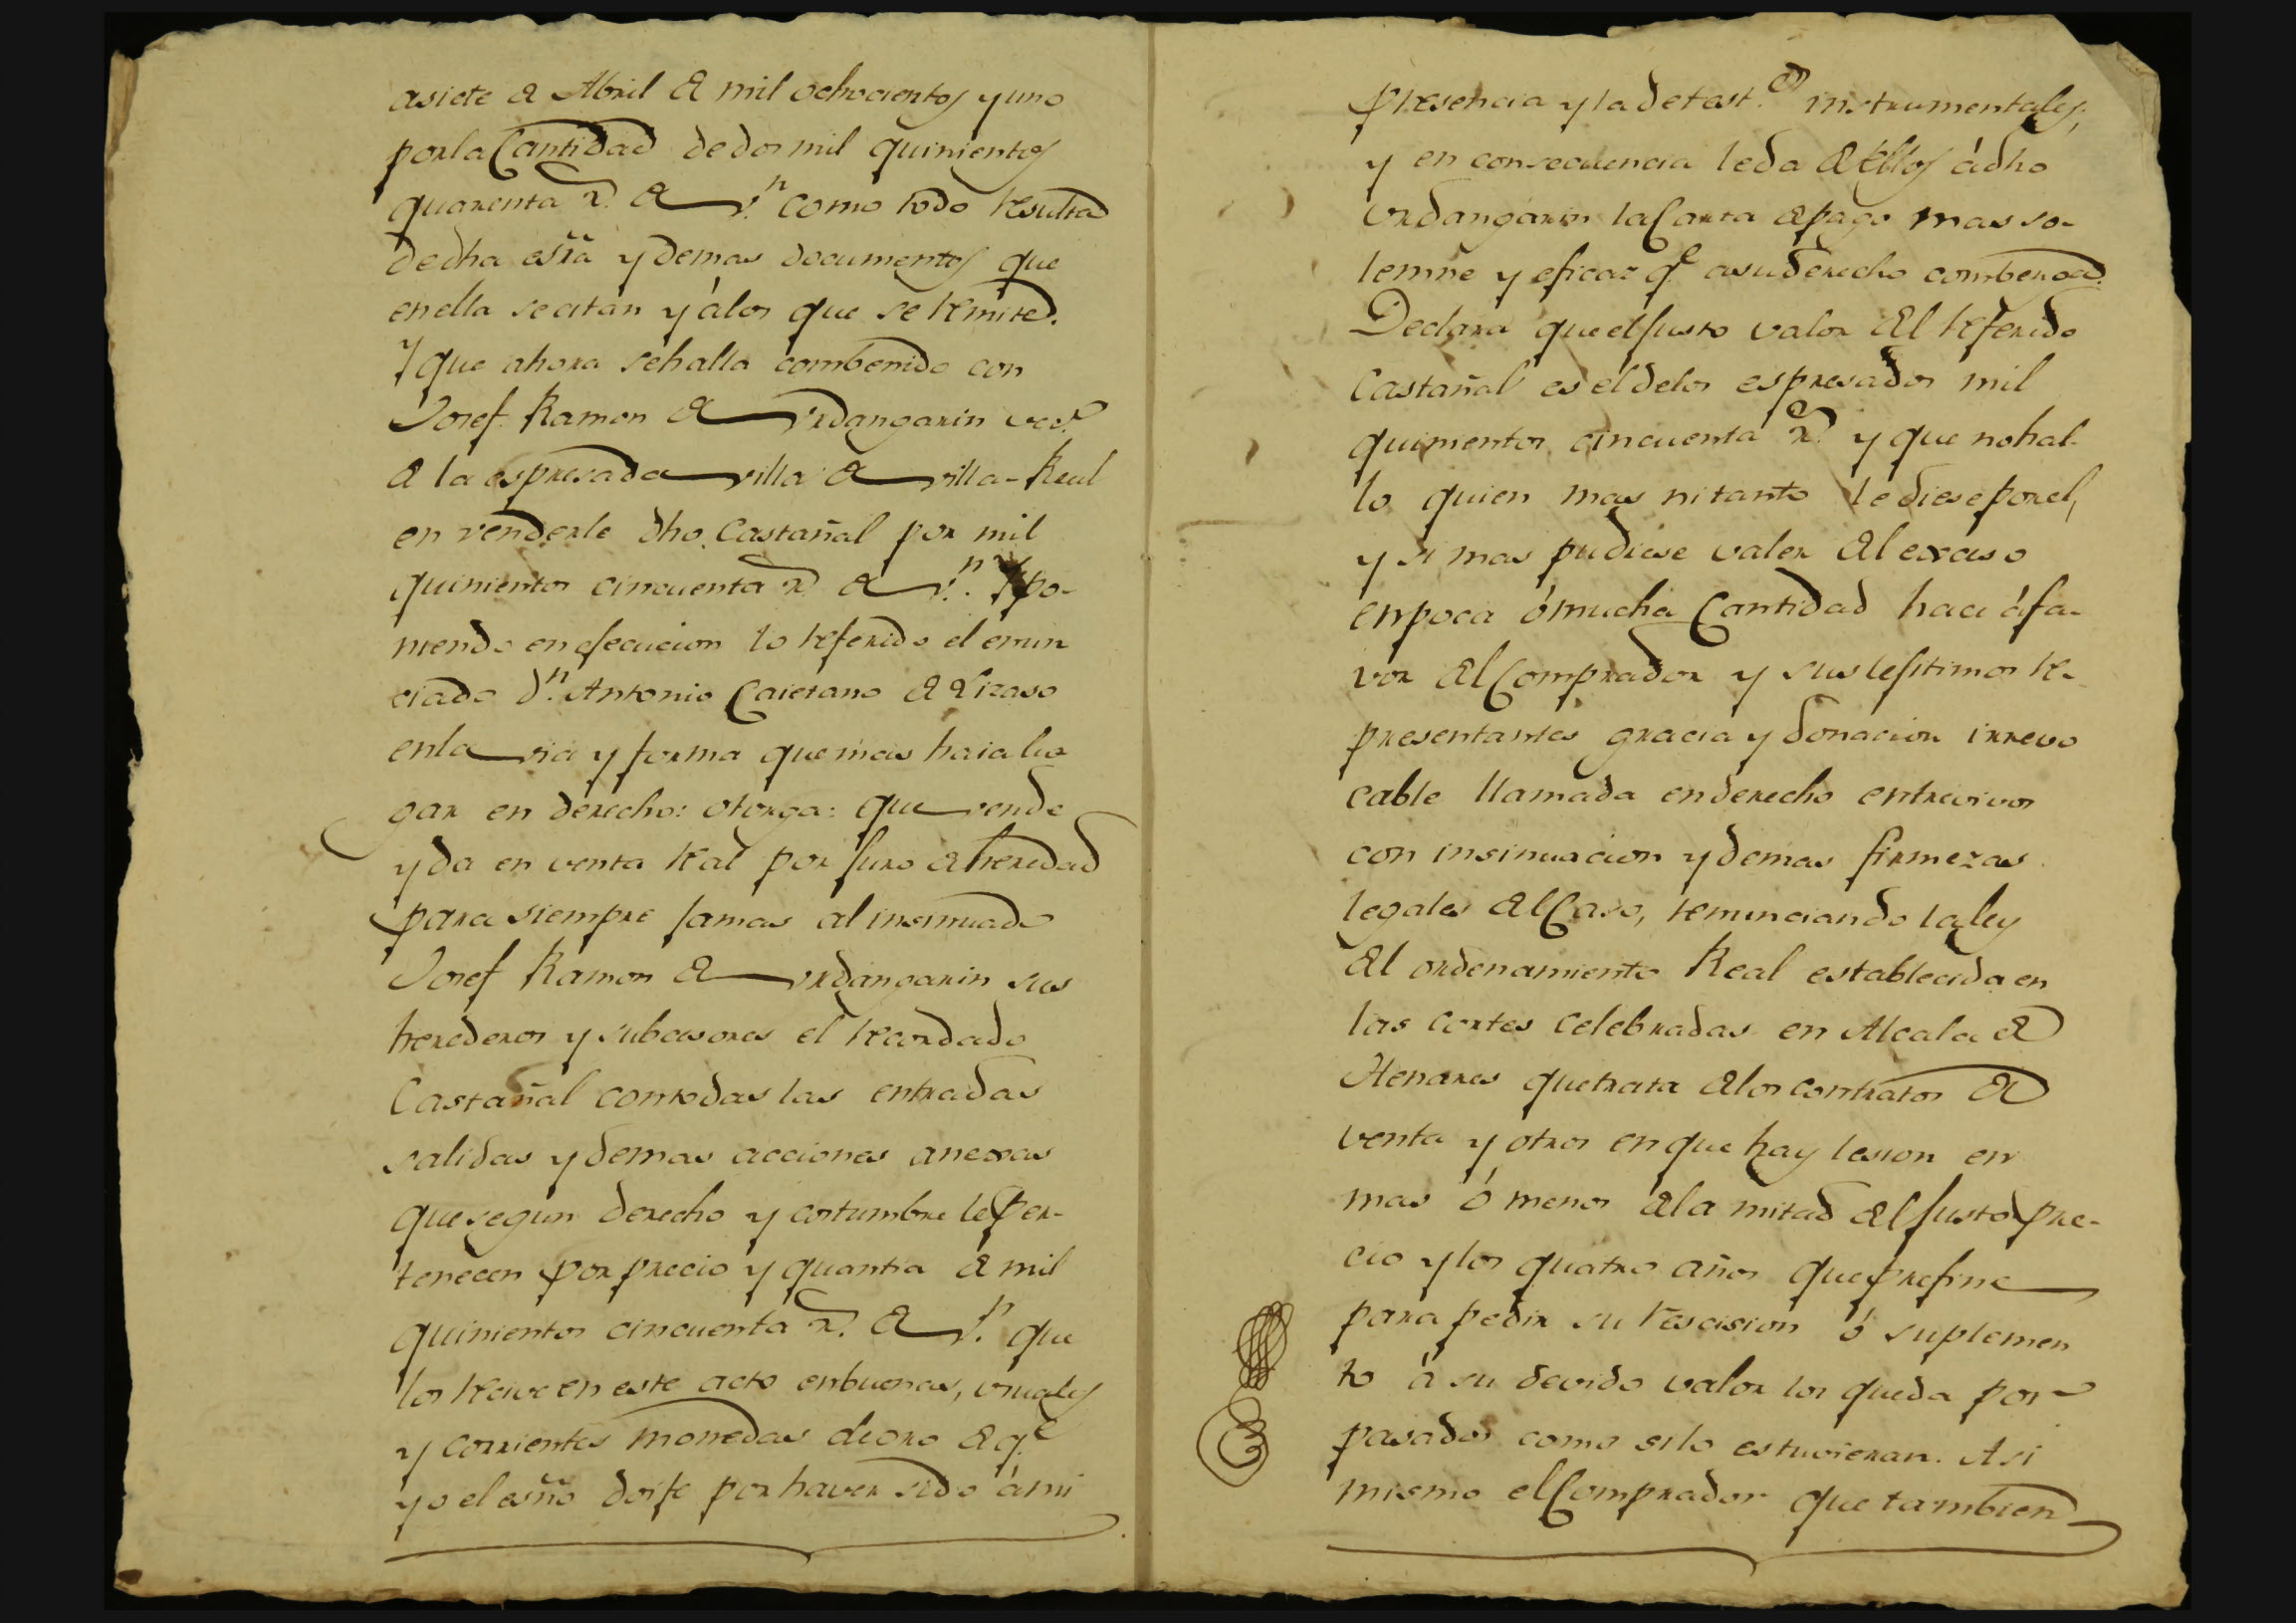 asiete de Abril de mil ochocientos y uno
por la Cantidad de dos mil quinientos
quarenta r.s de v.n como todo resulta
de dha esrã y demas documentos que
en ella se citan y á los que se remite.
Y que ahora se halla combenido con
Josef Ramon de Urdangarin vec.o
de la espresada villa de villa-Real
en venderle dho Castañal por mil
quinientos cincuenta r.s de v.n. Y po-
niendo en ejecucion lo referido el enun
ciado d.n Antonio Caietano de Lizaso
en la via y forma que mas haia lu
gar en derecho: otorga: que vende
y da en venta Real por juro de heredad
para siempre jamas al insinuado
Josef Ramon de Urdangarin sus
herederos y subcesores el recordado
Castañal con todas las entradas
salidas y demas acciones anexas
que segun derecho y costumbre le per-
tenecen por precio y quantia de mil
quinientos cincuenta r.s de v.n que
los recive en este acto en buenas, usuales
y corrientes monedas de oro de q.e
yo el esño doi fe por haver sido á mi
presencia y la de test.os instrumentales,
y en consecuencia le da de ellos á dho
Urdangarin la Carta de pago mas so-
lemne y eficaz q.e a su derecho combenga.
Declara que el justo valor del referido
Castañal es el de los espresados mil
quinientos cincuenta r.s y que no hal-
lo quien mas ni tanto le diese por el,
y si mas pudiese valer del exceso
en poca ó mucha Cantidad hace á fa-
vor del Comprador y sus lejitimos re-
presentantes gracia y donacion irrevo
cable llamada en derecho entre vivos
con insinuacion y demas firmezas
legales del Caso, renunciando la ley
del ordenamiento Real establecida en
las cortes celebradas en Alcala de
Henares que trata de los contratos de
venta y otros en que hay lesion en
mas ó menos de la mitad del justo pre-
cio y los quatro años que prefine
para pedir su rescision ó suplemen
to á su devido valor los queda por
pasados como si lo estuvieran. Asi
mismo el Comprador que tambien